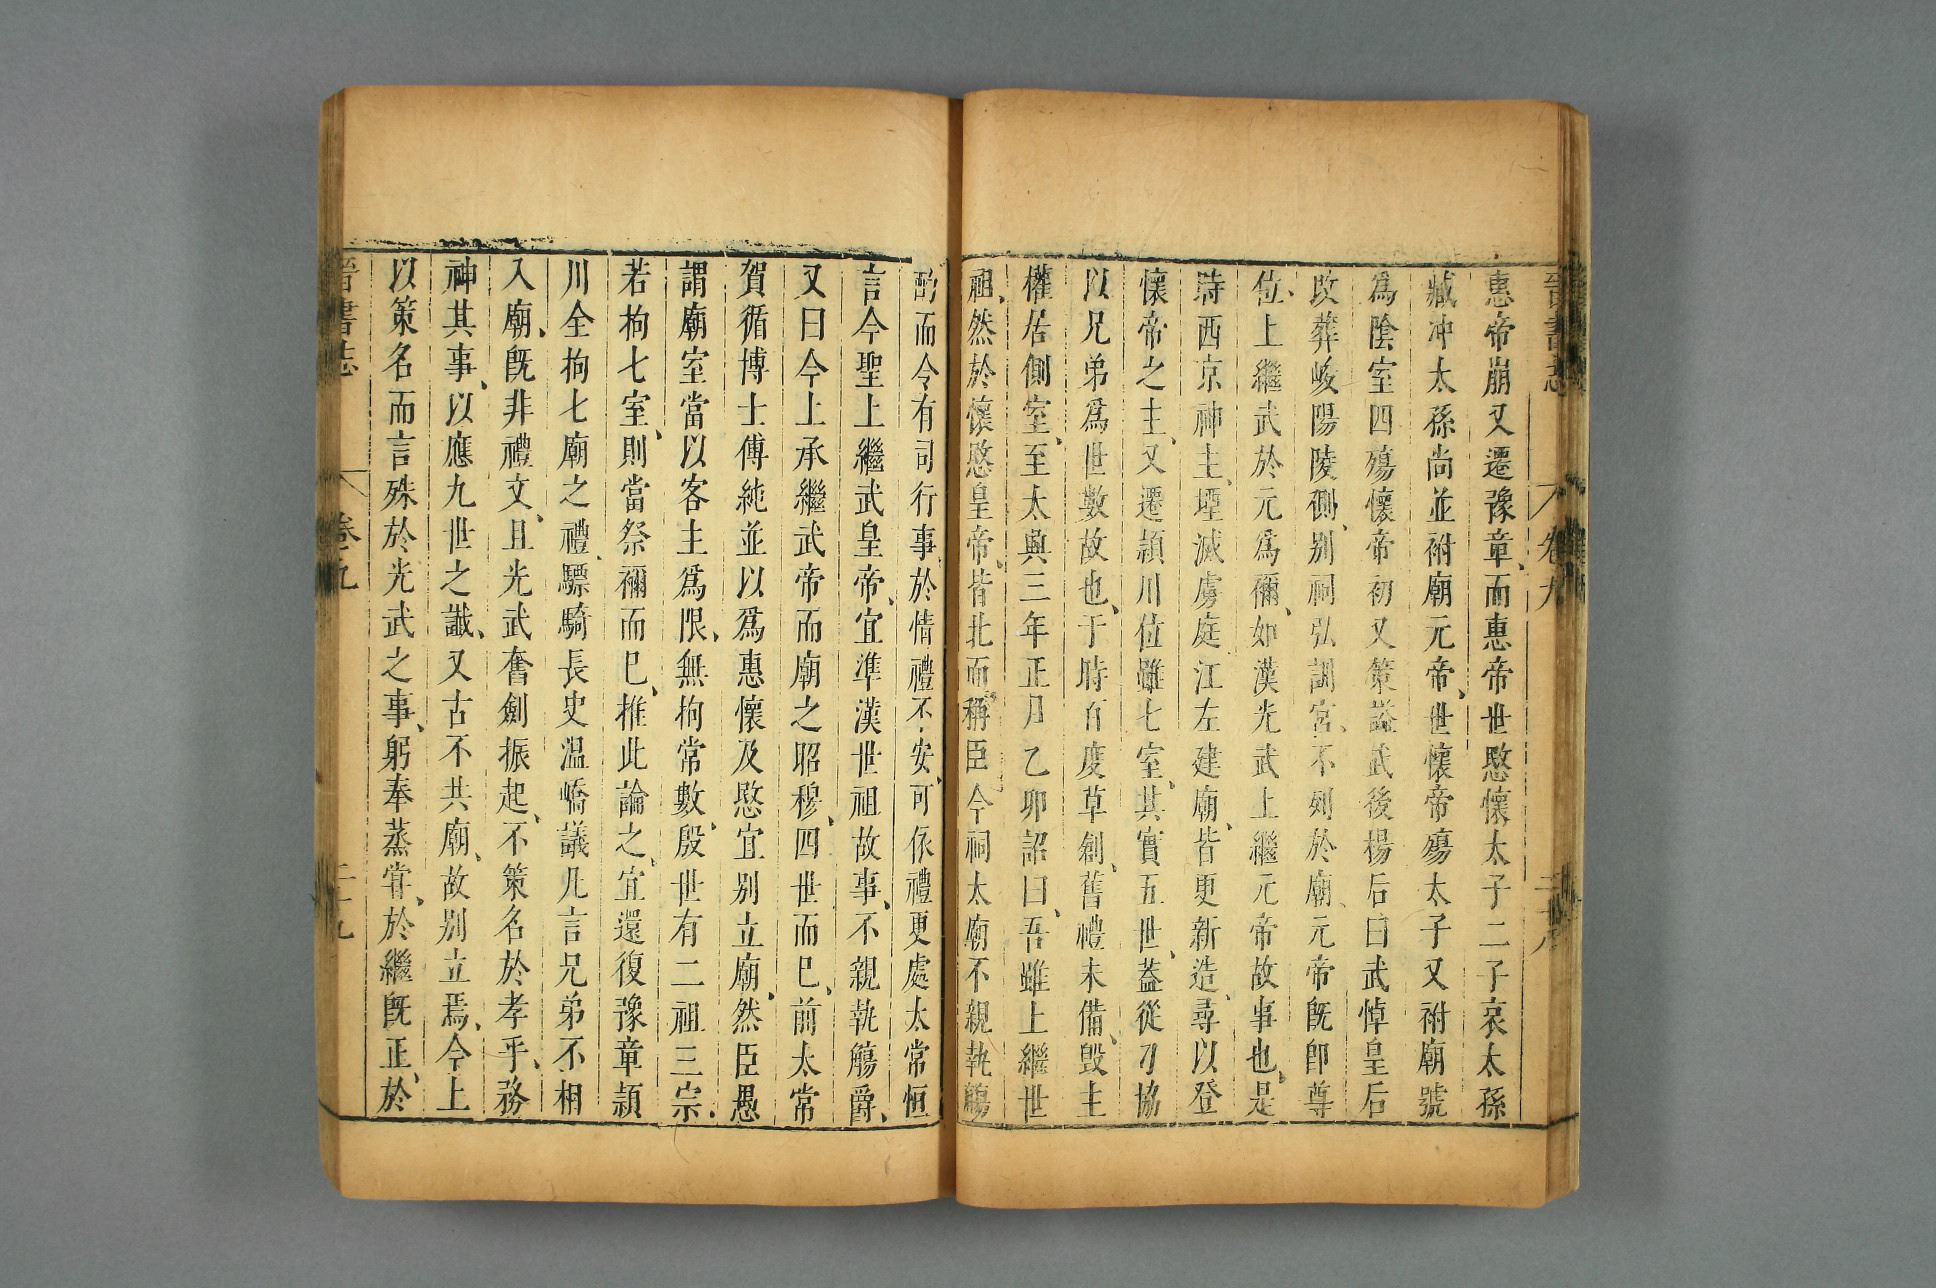 晉書志 卷九 三十八
惠帝崩又遷豫章而惠帝世愍懷太子二子哀太孫
臧冲太孫尚並祔廟元帝世懷帝殤太子又祔廟號
爲陰室四殤懷帝初又策謚武後楊后曰武悼皇后
改葬峻陽陵側别祠弘訓宮不列於廟元帝旣卽尊
位上繼武於元爲禰如漢光武上繼元帝故事也是
時西京神主堙滅虜庭江左建廟皆更新造尋以登
懷帝之主又遷頴川位雖七室其實五世葢從刁協
以兄弟爲世數故也于時百度草創舊禮未備毁主
權居側室至太興三年正月乙卯詔曰吾雖上繼世
祖然於懷愍皇帝皆北面稱臣今祠太廟不親執觴
酌而令有司行事於情禮不安可依禮更處太常恒
言今聖上繼武皇帝宜準漢世祖故事不親執觴爵
又曰今上承繼武帝而廟之昭穆四世而已前太常
賀循博士傅純並以爲惠懷及愍宜别立廟然臣愚
謂廟室當以客主爲限無拘常數殷世有二祖三宗
若拘七室則當祭禰而已推此論之宜還復豫章頴
川全拘七廟之禮驃騎長史温嶠議凡言兄弟不相
入廟旣非禮文且光武奮劍振起不策名於孝乎務
神其事以應九世之讖又古不共廟故别立焉今上
以策名而言殊於光武之事躬奉蒸甞於繼旣正於
晉書志 卷九 三十九